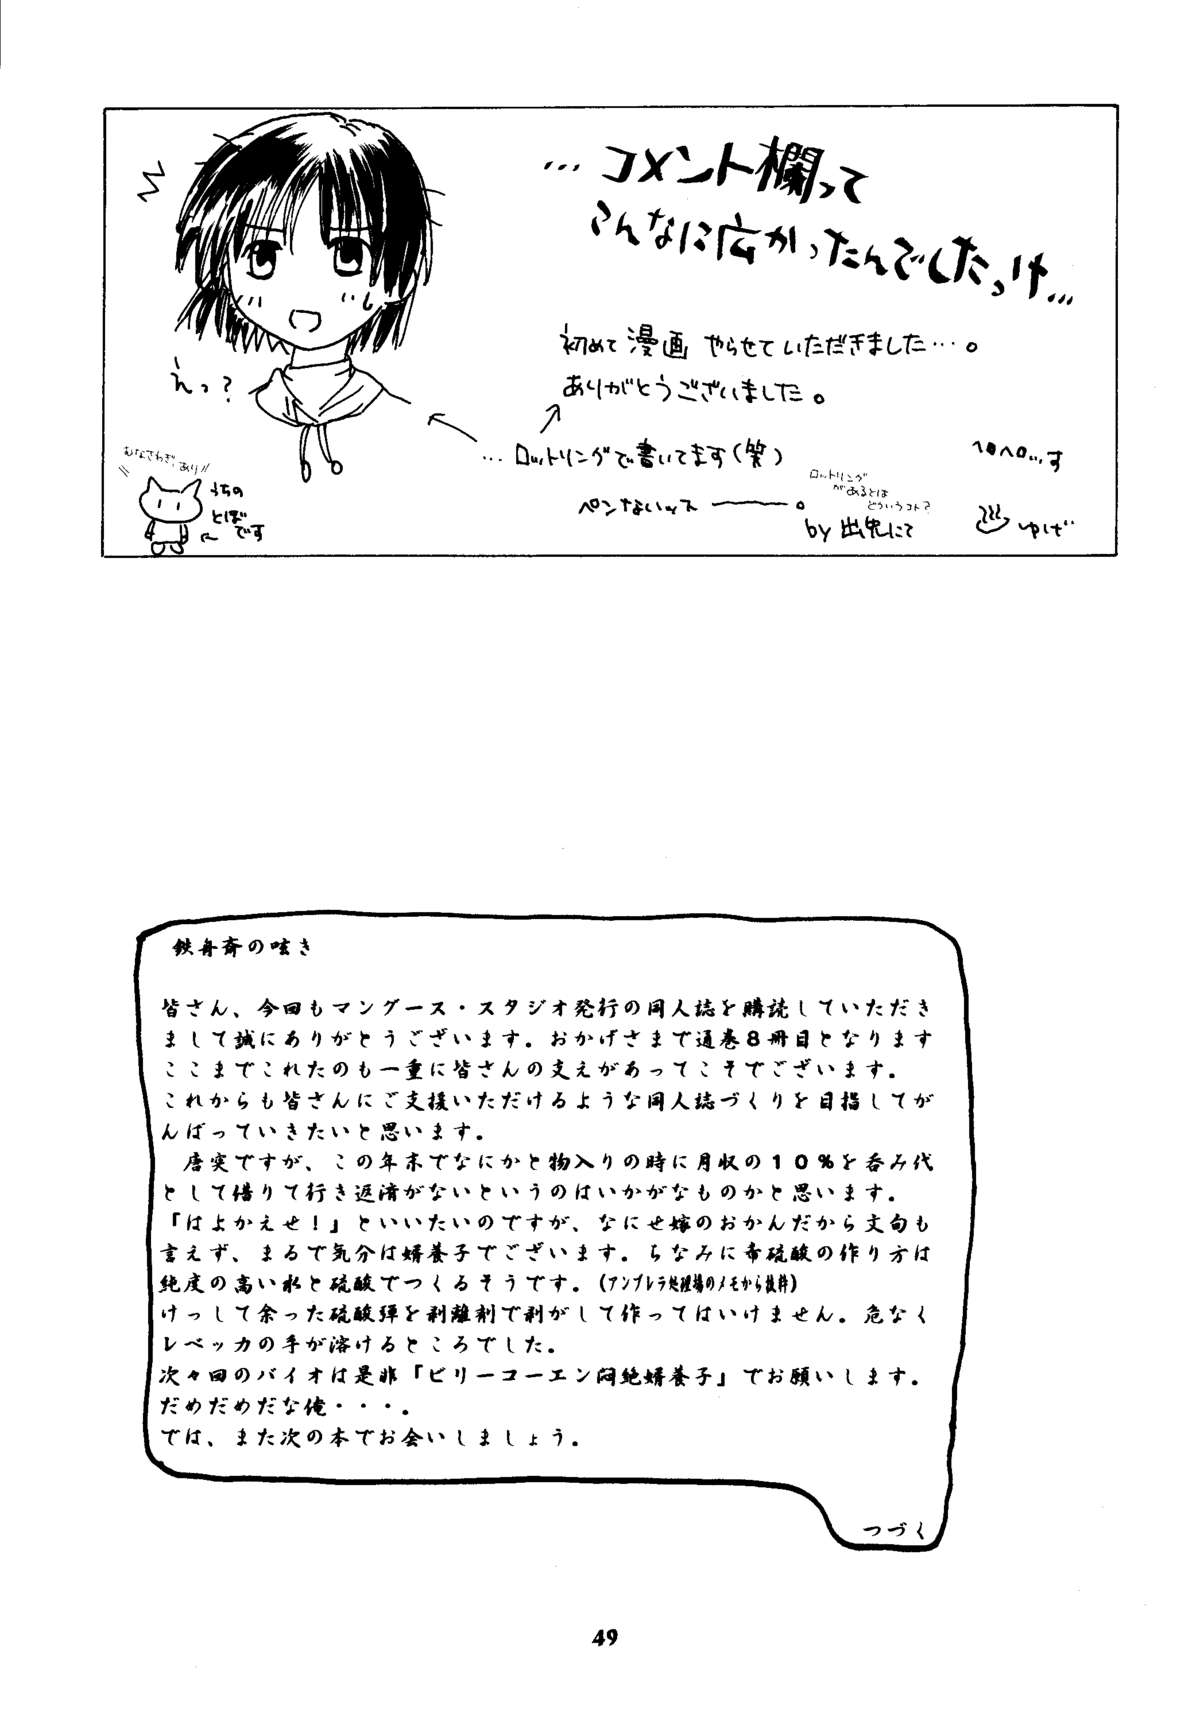 …コメント欄って
こんなに広かったんでしたっけ…
初めて漫画やらせていただきました…。
ありがとうございました。
…ロットリングで書いてます(笑)
ペンないッス――。
ロットリング
があるとは
どういうコト?
by 出鬼にて
ヘロヘロ…ッす
ゆげ
えっ?
むなさわぎ、あり
うちの
とぼ
です
鉄舟斎の呟き
皆さん、今回もマングース・スタジオ発行の同人誌を購読していただき
まして誠にありがとうございます。おかげさまで通巻8冊目となります
ここまでこれたのも一重に皆さんの支えがあってこそでございます。
これからも皆さんにご支援いただけるような同人誌づくりを目指してが
んばっていきたいと思います。
唐突ですが、この年末でなにかと物入りの時に月収の10%を呑み代
として借りて行き返済がないというのはいかがなものかと思います。
「はよかえせ!」といいたいのですが、なにせ嫁のおかんだから文句も
言えず、まるで気分は婿養子でございます。ちなみに希硫酸の作り方は
純度の高い水と硫酸でつくるそうです。(アンブレラ処理場のメモから抜粋)
けっして余った硫酸弾を剥離剤で剥がして作ってはいけません。危なく
レベッカの手が溶けるところでした。
次々回のバイオは是非「ビリーコーエン悶絶婿養子」でお願いします。
だめだめだな俺・・・。
では、また次の本でお会いしましょう。
つづく
49